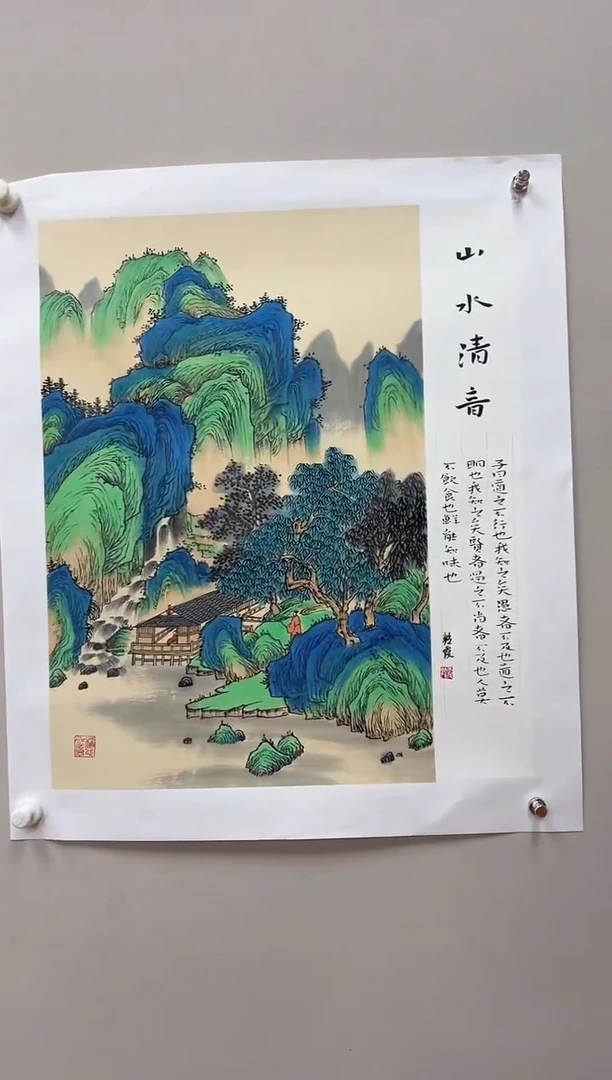 山水清音
子曰道之不行也我知之矣愚者不及也道之不
明也我知之矣賢者過之不肖者不及也人莫
不飲食也鮮能知味也